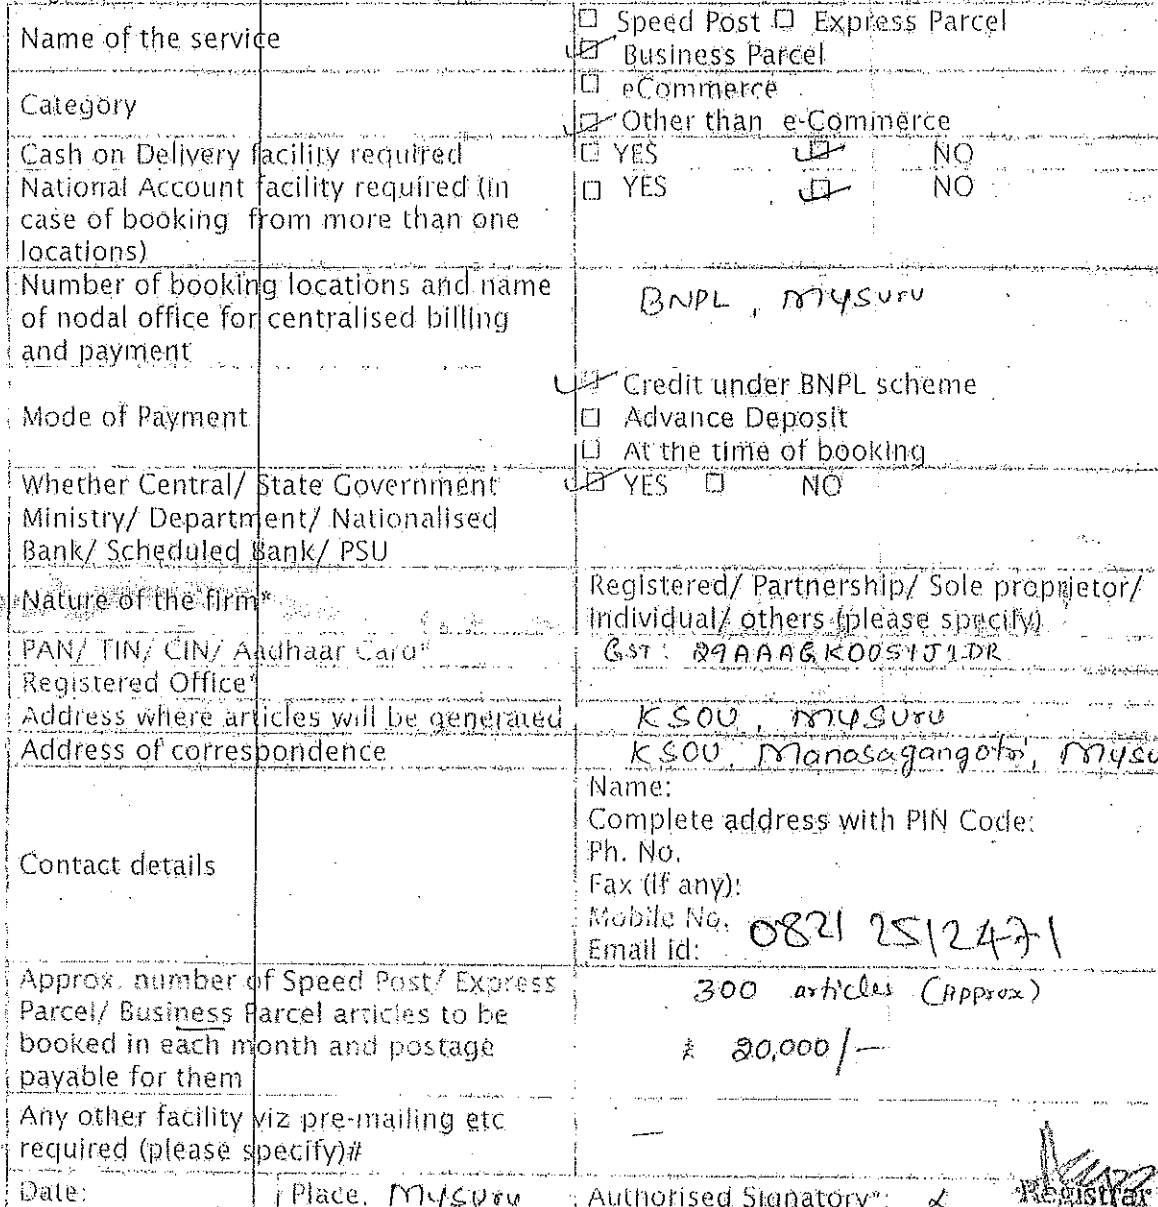 Name of the service
☐ Speed Post ☐ Express Parcel
☑ Business Parcel
Category
☐ eCommerce
☑ Other than e-Commerce
Cash on Delivery facility required
☐ YES ☑ NO
National Account facility required (in
case of booking from more than one
locations)
☐ YES ☑ NO
Number of booking locations and name
of nodal office for centralised billing
and payment
BNPL, Mysuru
Mode of Payment
☑ Credit under BNPL scheme
☐ Advance Deposit
☐ At the time of booking
Whether Central/ State Government
Ministry/ Department/ Nationalised
Bank/ Scheduled Bank/ PSU
☑ YES ☐ NO
Nature of the firm*
Registered/ Partnership/ Sole proprietor/
Individual/ others (please specify)
PAN/ TIN/ CIN/ Aadhaar Card*
GST:
Registered Office*
Address where articles will be generated
KSOU, Mysuru
Address of correspondence
KSOU, Manasagangotri, Mysu
Contact details
Name:
Complete address with PIN Code:
Ph. No.
Fax (if any):
Mobile No. 0821 2512471
Email id:
Approx. number of Speed Post/ Express
Parcel/ Business Parcel articles to be
booked in each month and postage
payable for them
300 articles (Approx)
₹ 20,000/-
Any other facility viz pre-mailing etc
required (please specify)#
—
Date: Place. Mysuru Authorised Signatory*:
Registrar